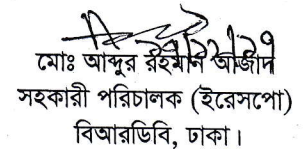 মোঃ আব্দুর রহমান আজাদ
সহকারী পরিচালক (ইরেসপো)
বিআরডিবি, ঢাকা।